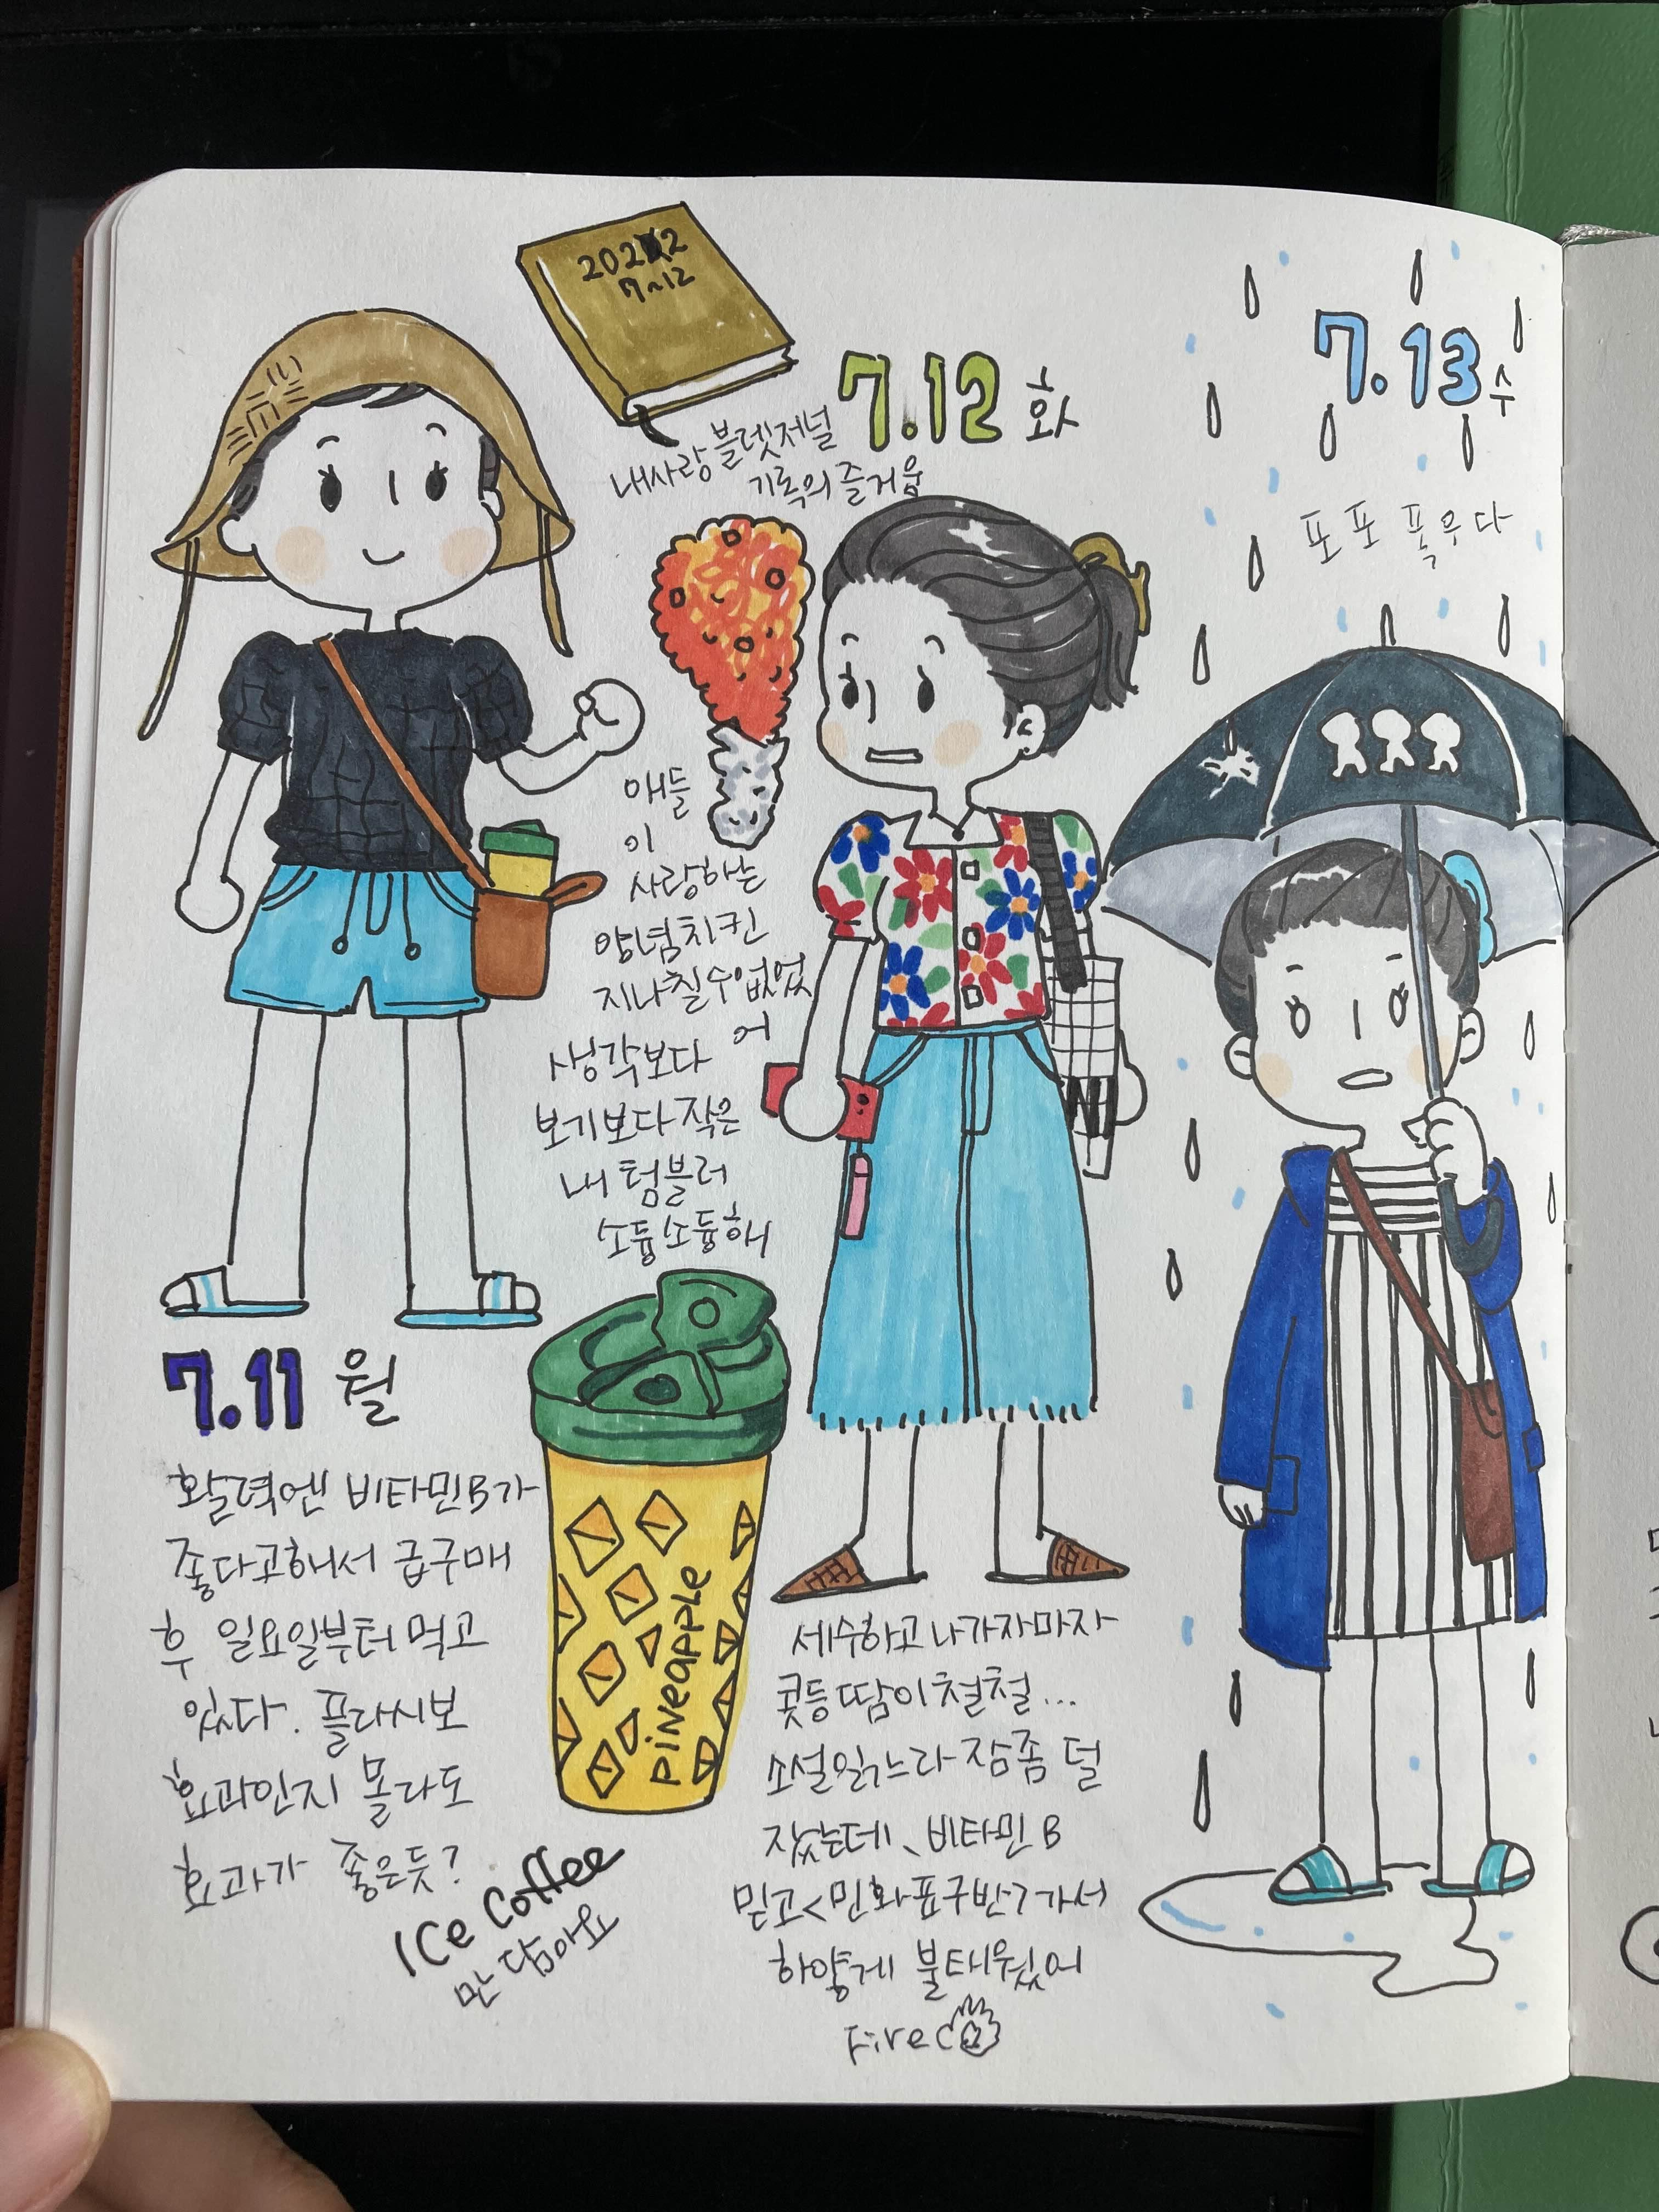 2022
7~12
내사랑 불렛저널
기록의 즐거움
7.11 월
활력엔 비타민B가
좋다고해서 급구매
후 일요일부터 먹고
있다. 플라시보
효과인지 몰라도
효과가 좋은듯?
ICe Coffee
만 담아요
애들
이
사랑하는
양념치킨
지나칠수없었
어
생각보다
보기보다 작은
내 텀블러
소듕소듕해
PiNeaPPLe
7.12 화
세수하고 나가자마자
콧등땀이 철철...
소설읽느라 잠좀 덜
잤는데, 비타민 B
믿고 <민화표구반> 가서
하얗게 불태웠어
Fire
7.13 수
포포 폭우다